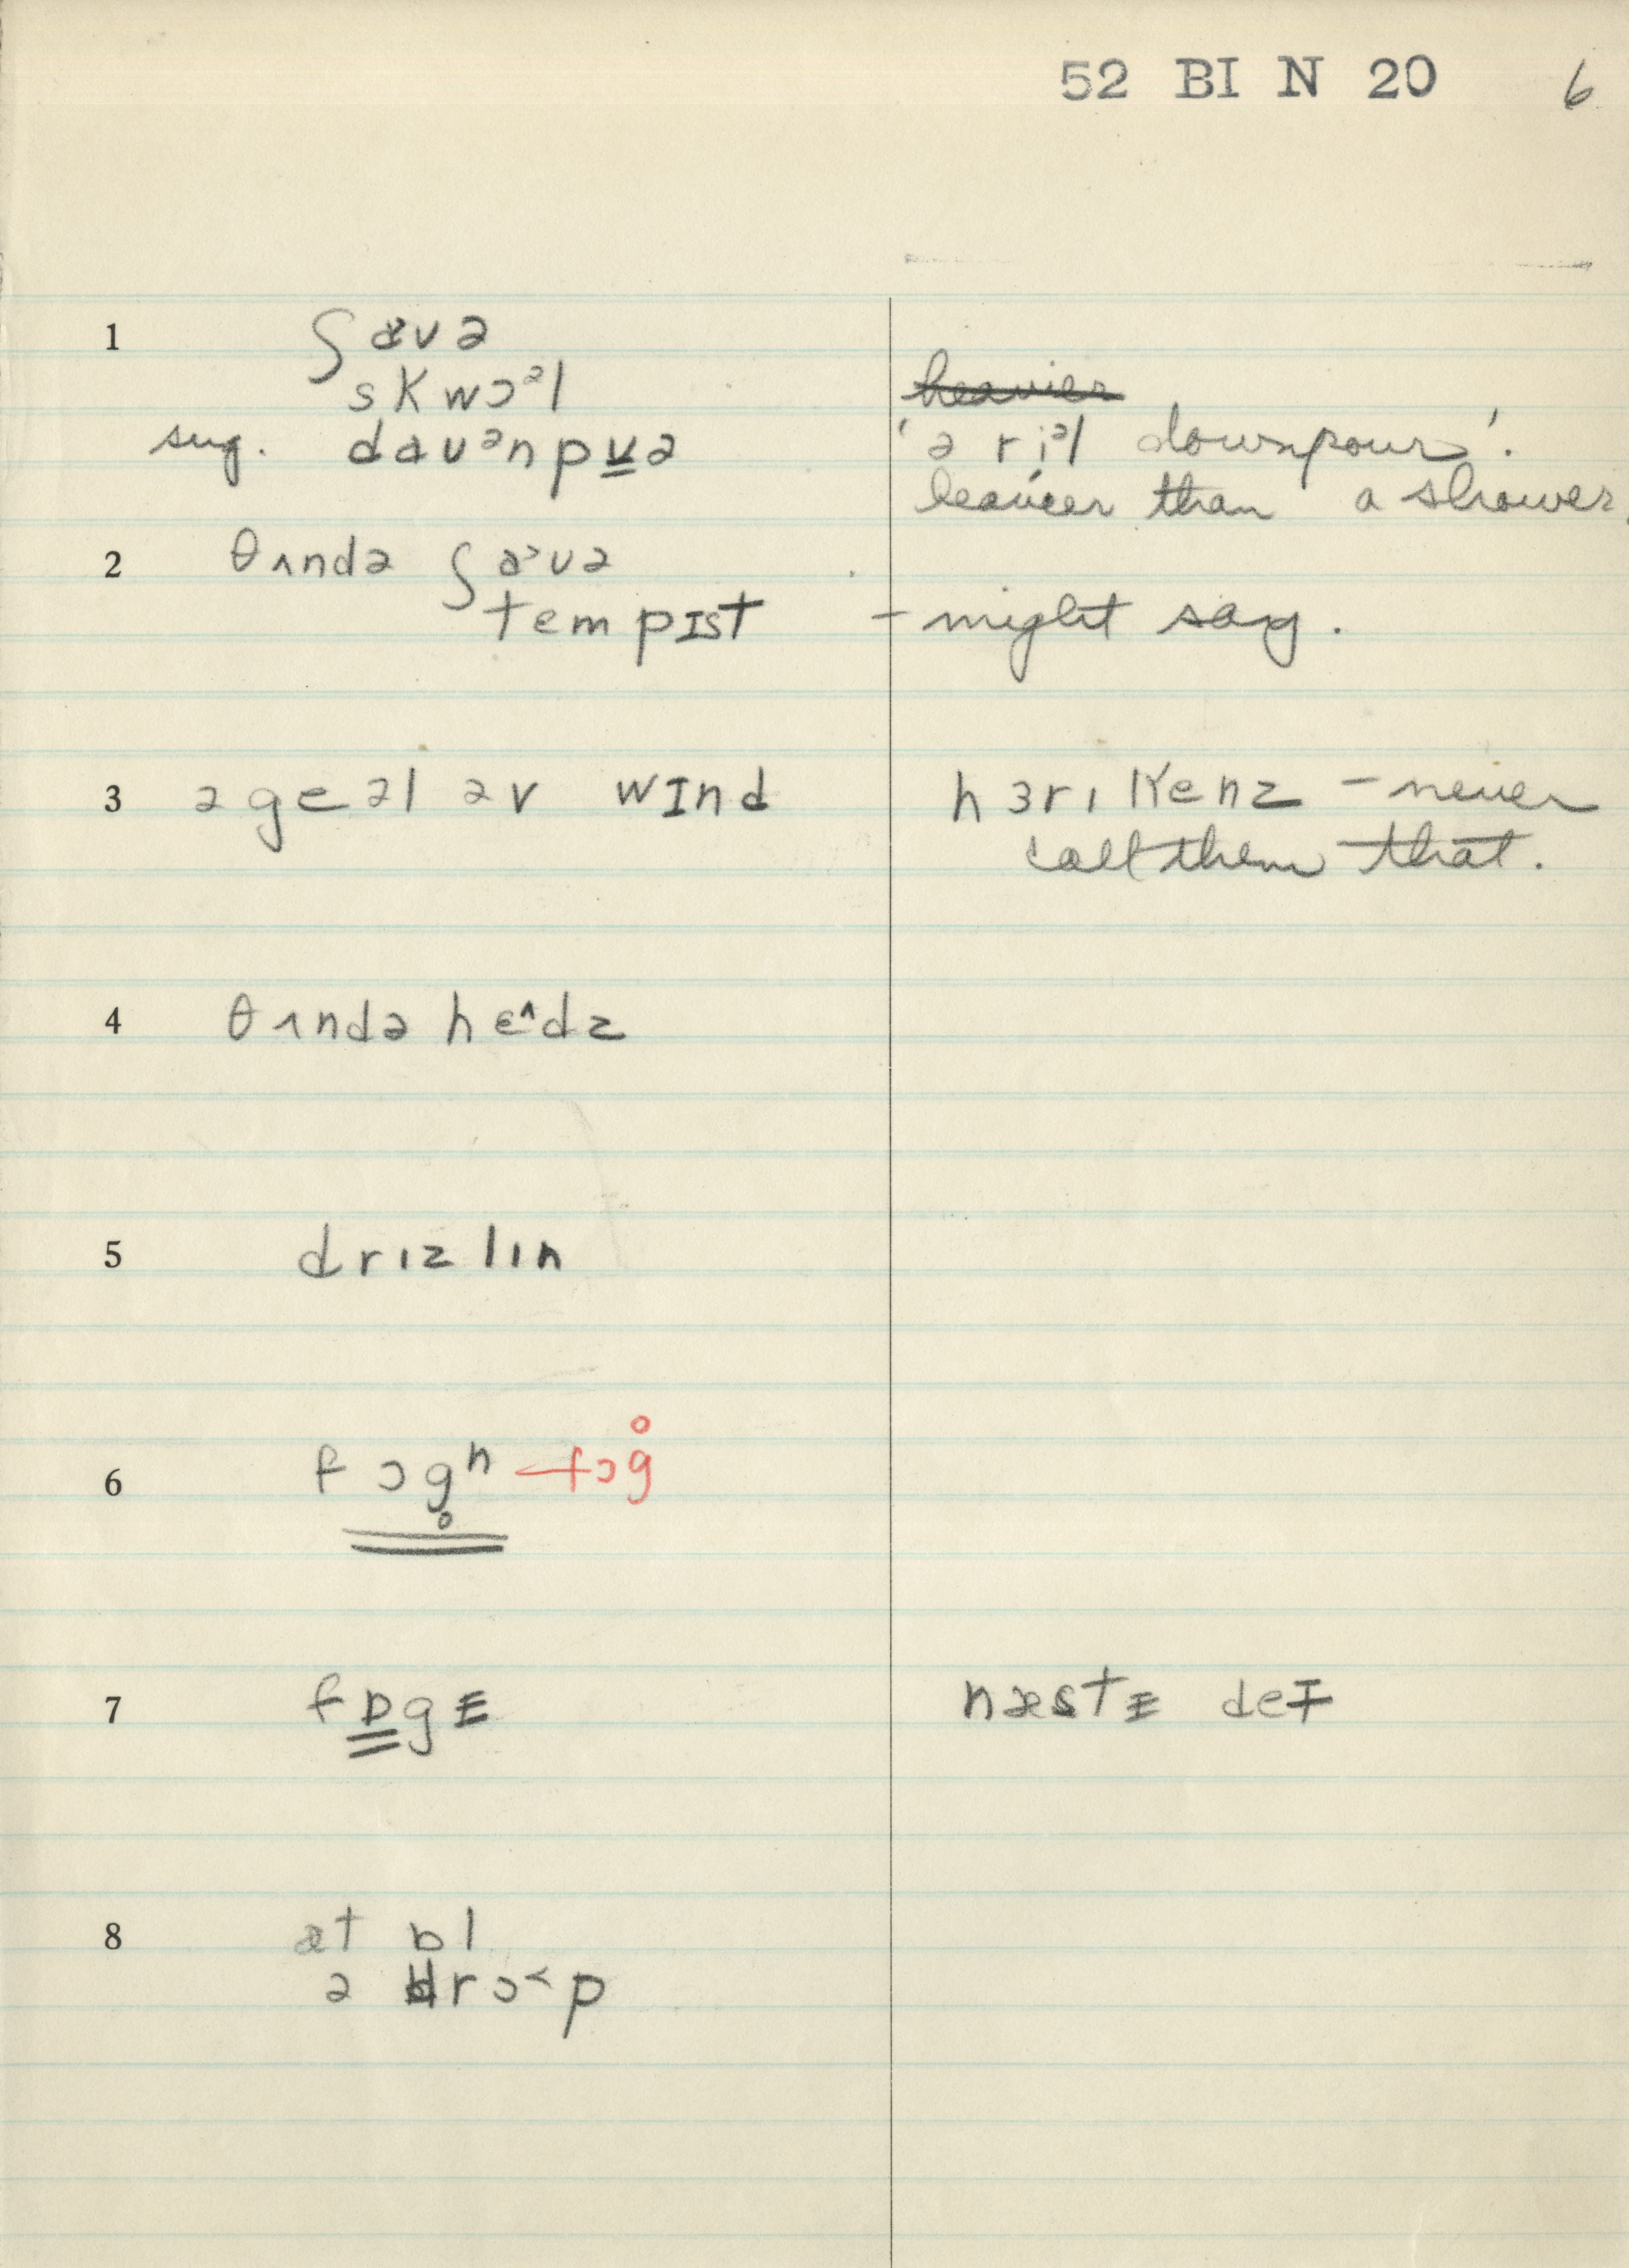 52 BI N 20 6
1 ʃaʊə
skwɔᵊl
heavier
sug. daʊᵊnpʊ̲ə 'ə ri̜ᵊl downpour'.
heavier than a shower.
2 θʌndə ʃa˃ʊə
tempɪst – might say.
3 ə geəl əv wɪnd hɜrɪkenz – never
call them that.
4 θʌndə hɛ^dz
5 drɪzlɪn
6 fɔg̥ʰ fɔg̊
7 fɒgɪ næstɪ deɪ
8 ət ɒl
ə drɔ˂p